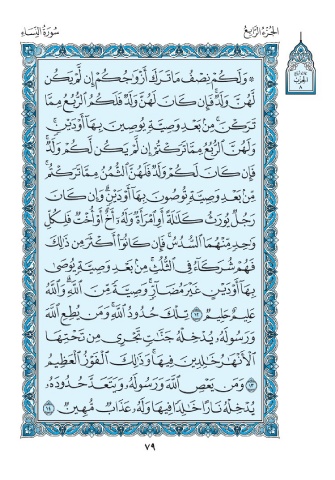 الجزء الرابع
سورة النساء
۞ وَلَكُمْ نِصْفُ مَا تَرَكَ أَزْوَاجُكُمْ إِن لَّمْ يَكُن
لَّهُنَّ وَلَدٌ فَإِن كَانَ لَهُنَّ وَلَدٌ فَلَكُمُ الرُّبُعُ مِمَّا
تَرَكْنَ مِنْ بَعْدِ وَصِيَّةٍ يُوصِينَ بِهَا أَوْ دَيْنٍ
وَلَهُنَّ الرُّبُعُ مِمَّا تَرَكْتُمْ إِن لَّمْ يَكُن لَّكُمْ وَلَدٌ
فَإِن كَانَ لَكُمْ وَلَدٌ فَلَهُنَّ الثُّمُنُ مِمَّا تَرَكْتُم
مِّنْ بَعْدِ وَصِيَّةٍ تُوصُونَ بِهَا أَوْ دَيْنٍ وَإِن كَانَ
رَجُلٌ يُورَثُ كَلَالَةً أَوِ امْرَأَةٌ وَلَهُ أَخٌ أَوْ أُخْتٌ فَلِكُلِّ
وَاحِدٍ مِّنْهُمَا السُّدُسُ فَإِن كَانُوا أَكْثَرَ مِن ذَلِكَ
فَهُمْ شُرَكَاءُ فِي الثُّلُثِ مِنْ بَعْدِ وَصِيَّةٍ يُوصَى
بِهَا أَوْ دَيْنٍ غَيْرَ مُضَارٍّ وَصِيَّةً مِّنَ اللَّهِ وَاللَّهُ
عَلِيمٌ حَلِيمٌ ١٢ تِلْكَ حُدُودُ اللَّهِ وَمَن يُطِعِ اللَّهَ
وَرَسُولَهُ يُدْخِلْهُ جَنَّاتٍ تَجْرِي مِن تَحْتِهَا
الْأَنْهَارُ خَالِدِينَ فِيهَا وَذَلِكَ الْفَوْزُ الْعَظِيمُ
١٣ وَمَن يَعْصِ اللَّهَ وَرَسُولَهُ وَيَتَعَدَّ حُدُودَهُ
يُدْخِلْهُ نَارًا خَالِدًا فِيهَا وَلَهُ عَذَابٌ مُّهِينٌ ١٤
٧٩